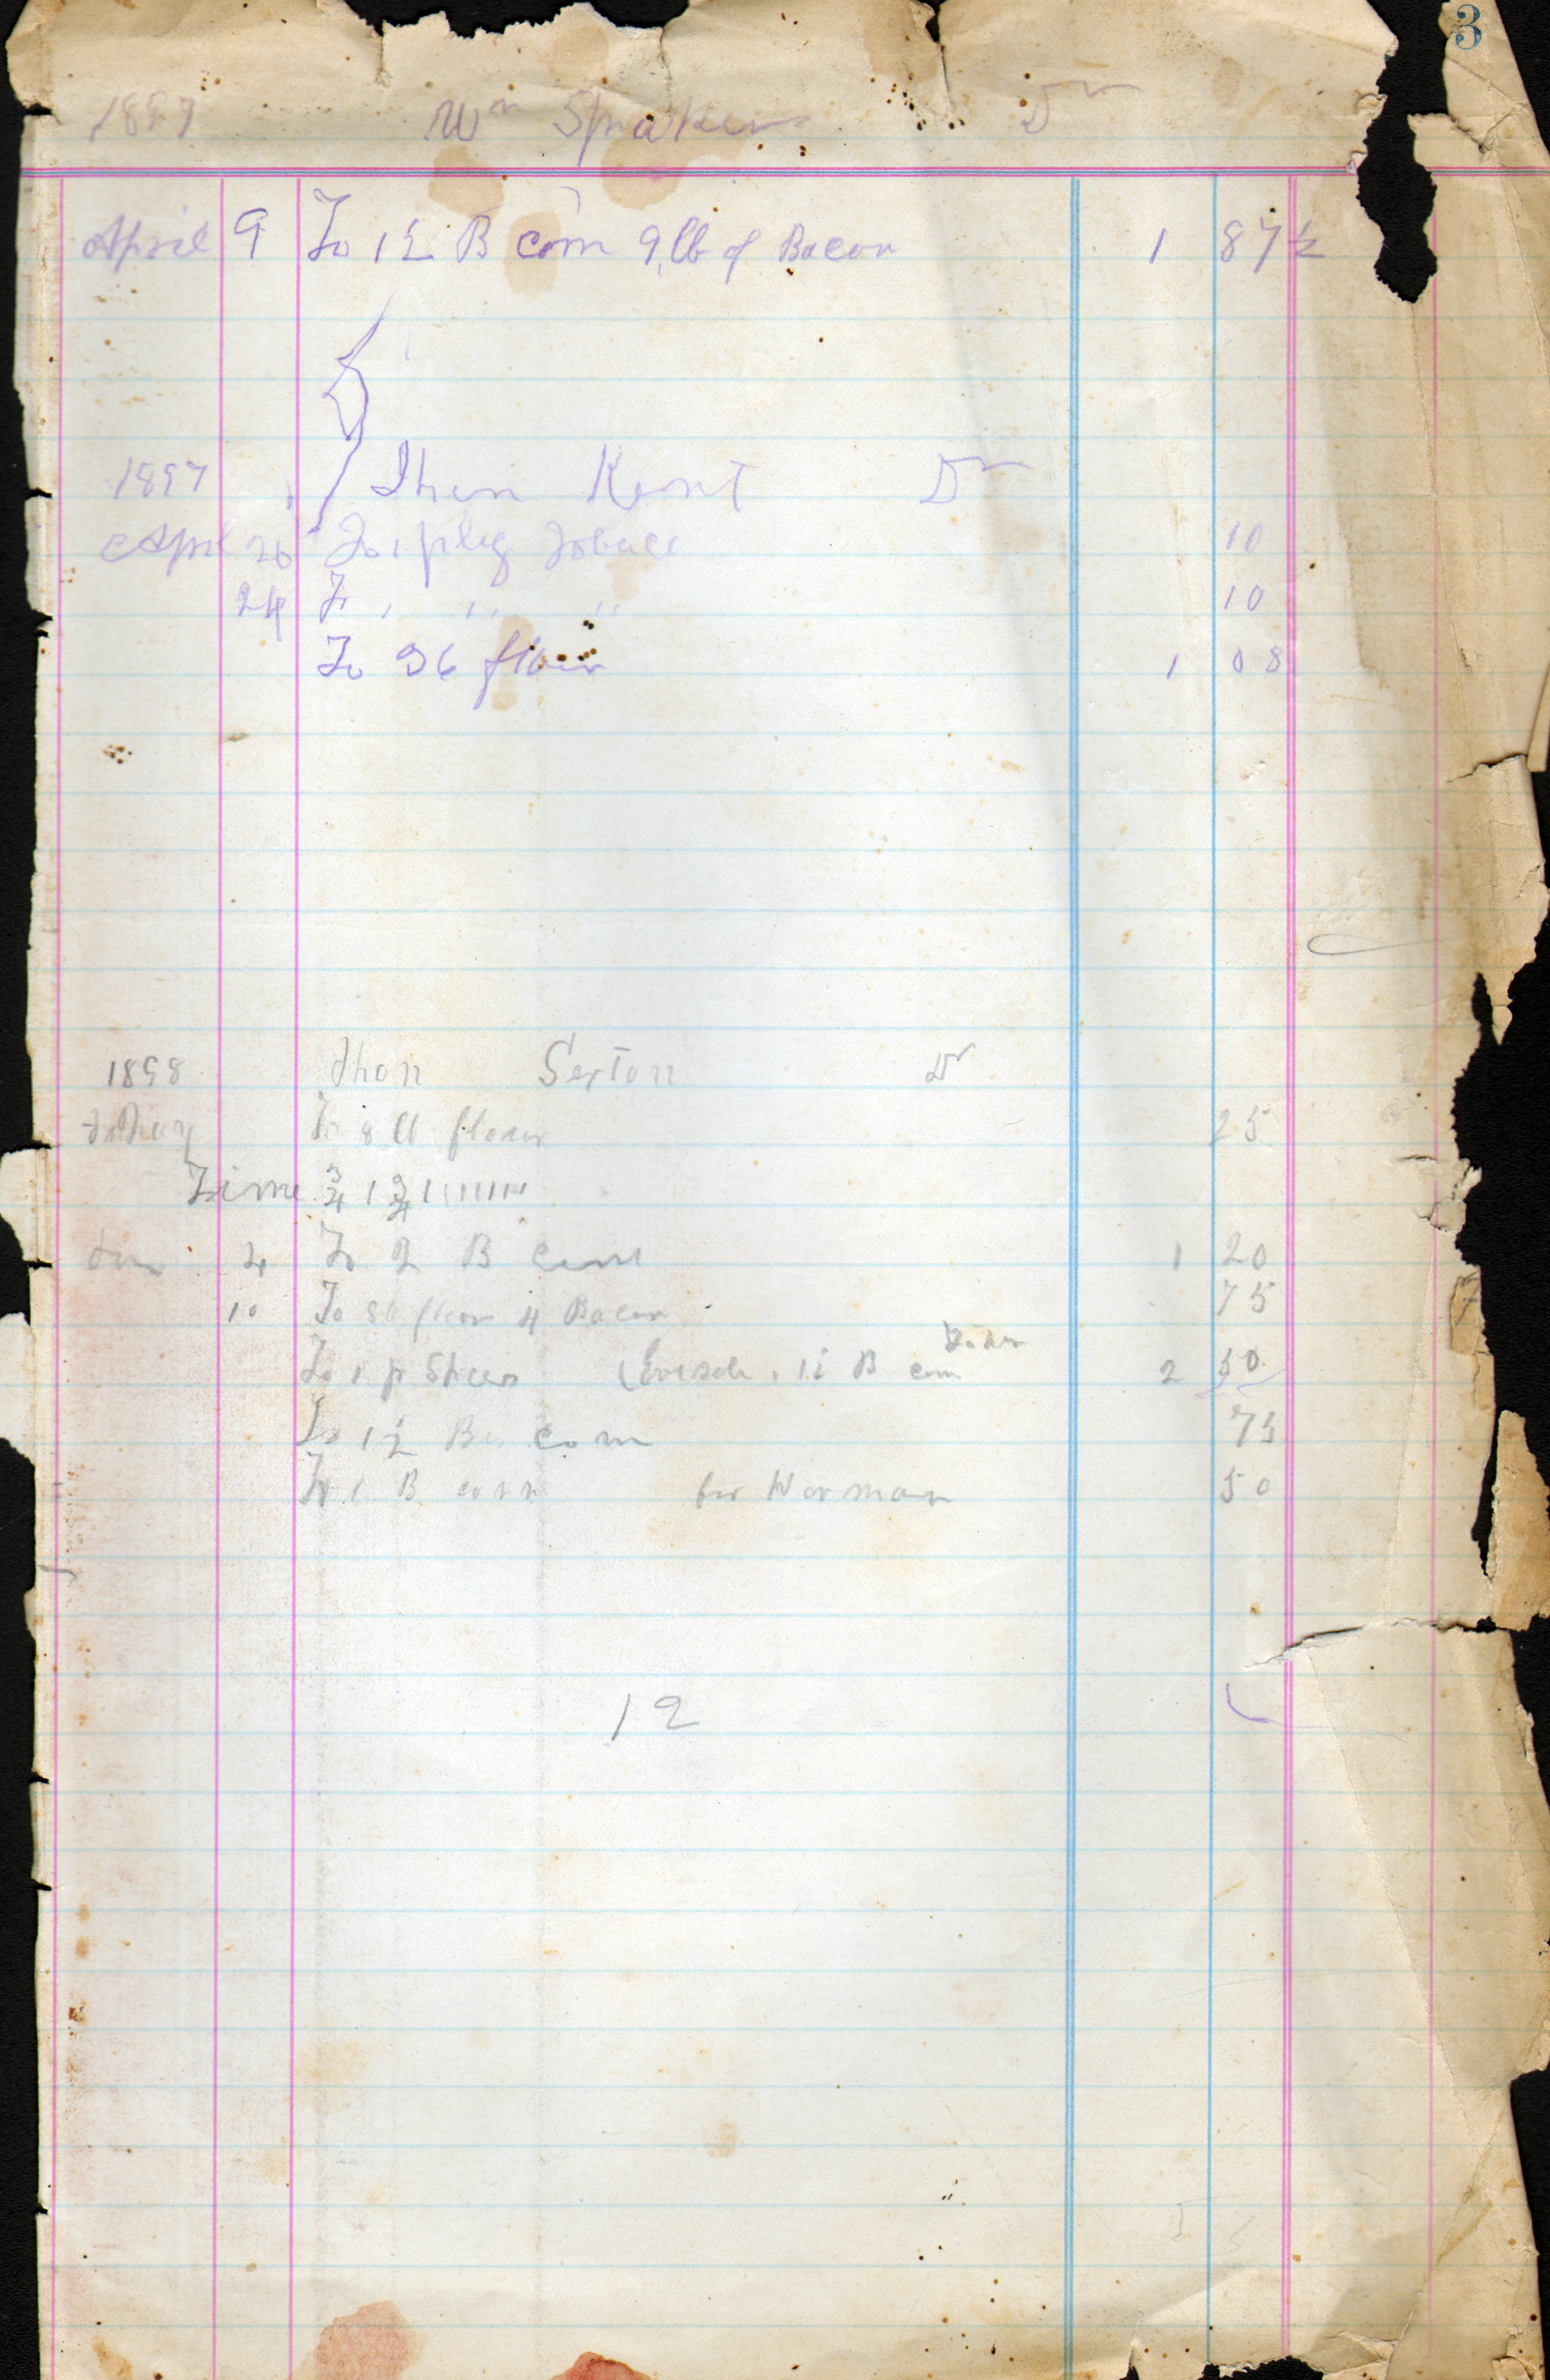 3
1897 Wm Spraker Dr
April 9 To 1½ B corn 9 lb of Bacon 1 87½
1897 Jhon Kent Dr
April 20 To 1 plug Tobacc 10
24 To 1 " " 10
To 36 flour 1 08
1898 Jhon Sexton Dr
To 8 ll flour 25
Time ¾ 1 ¾ 1 1 1 1 1 1 1
4 To 2 B corn 1 20
10 To 50 flour 4 Bacon 75
To 1 p Shoes 1½ B corn 2 50
To 1½ B corn 75
To 1 B corn for Worman 50
12